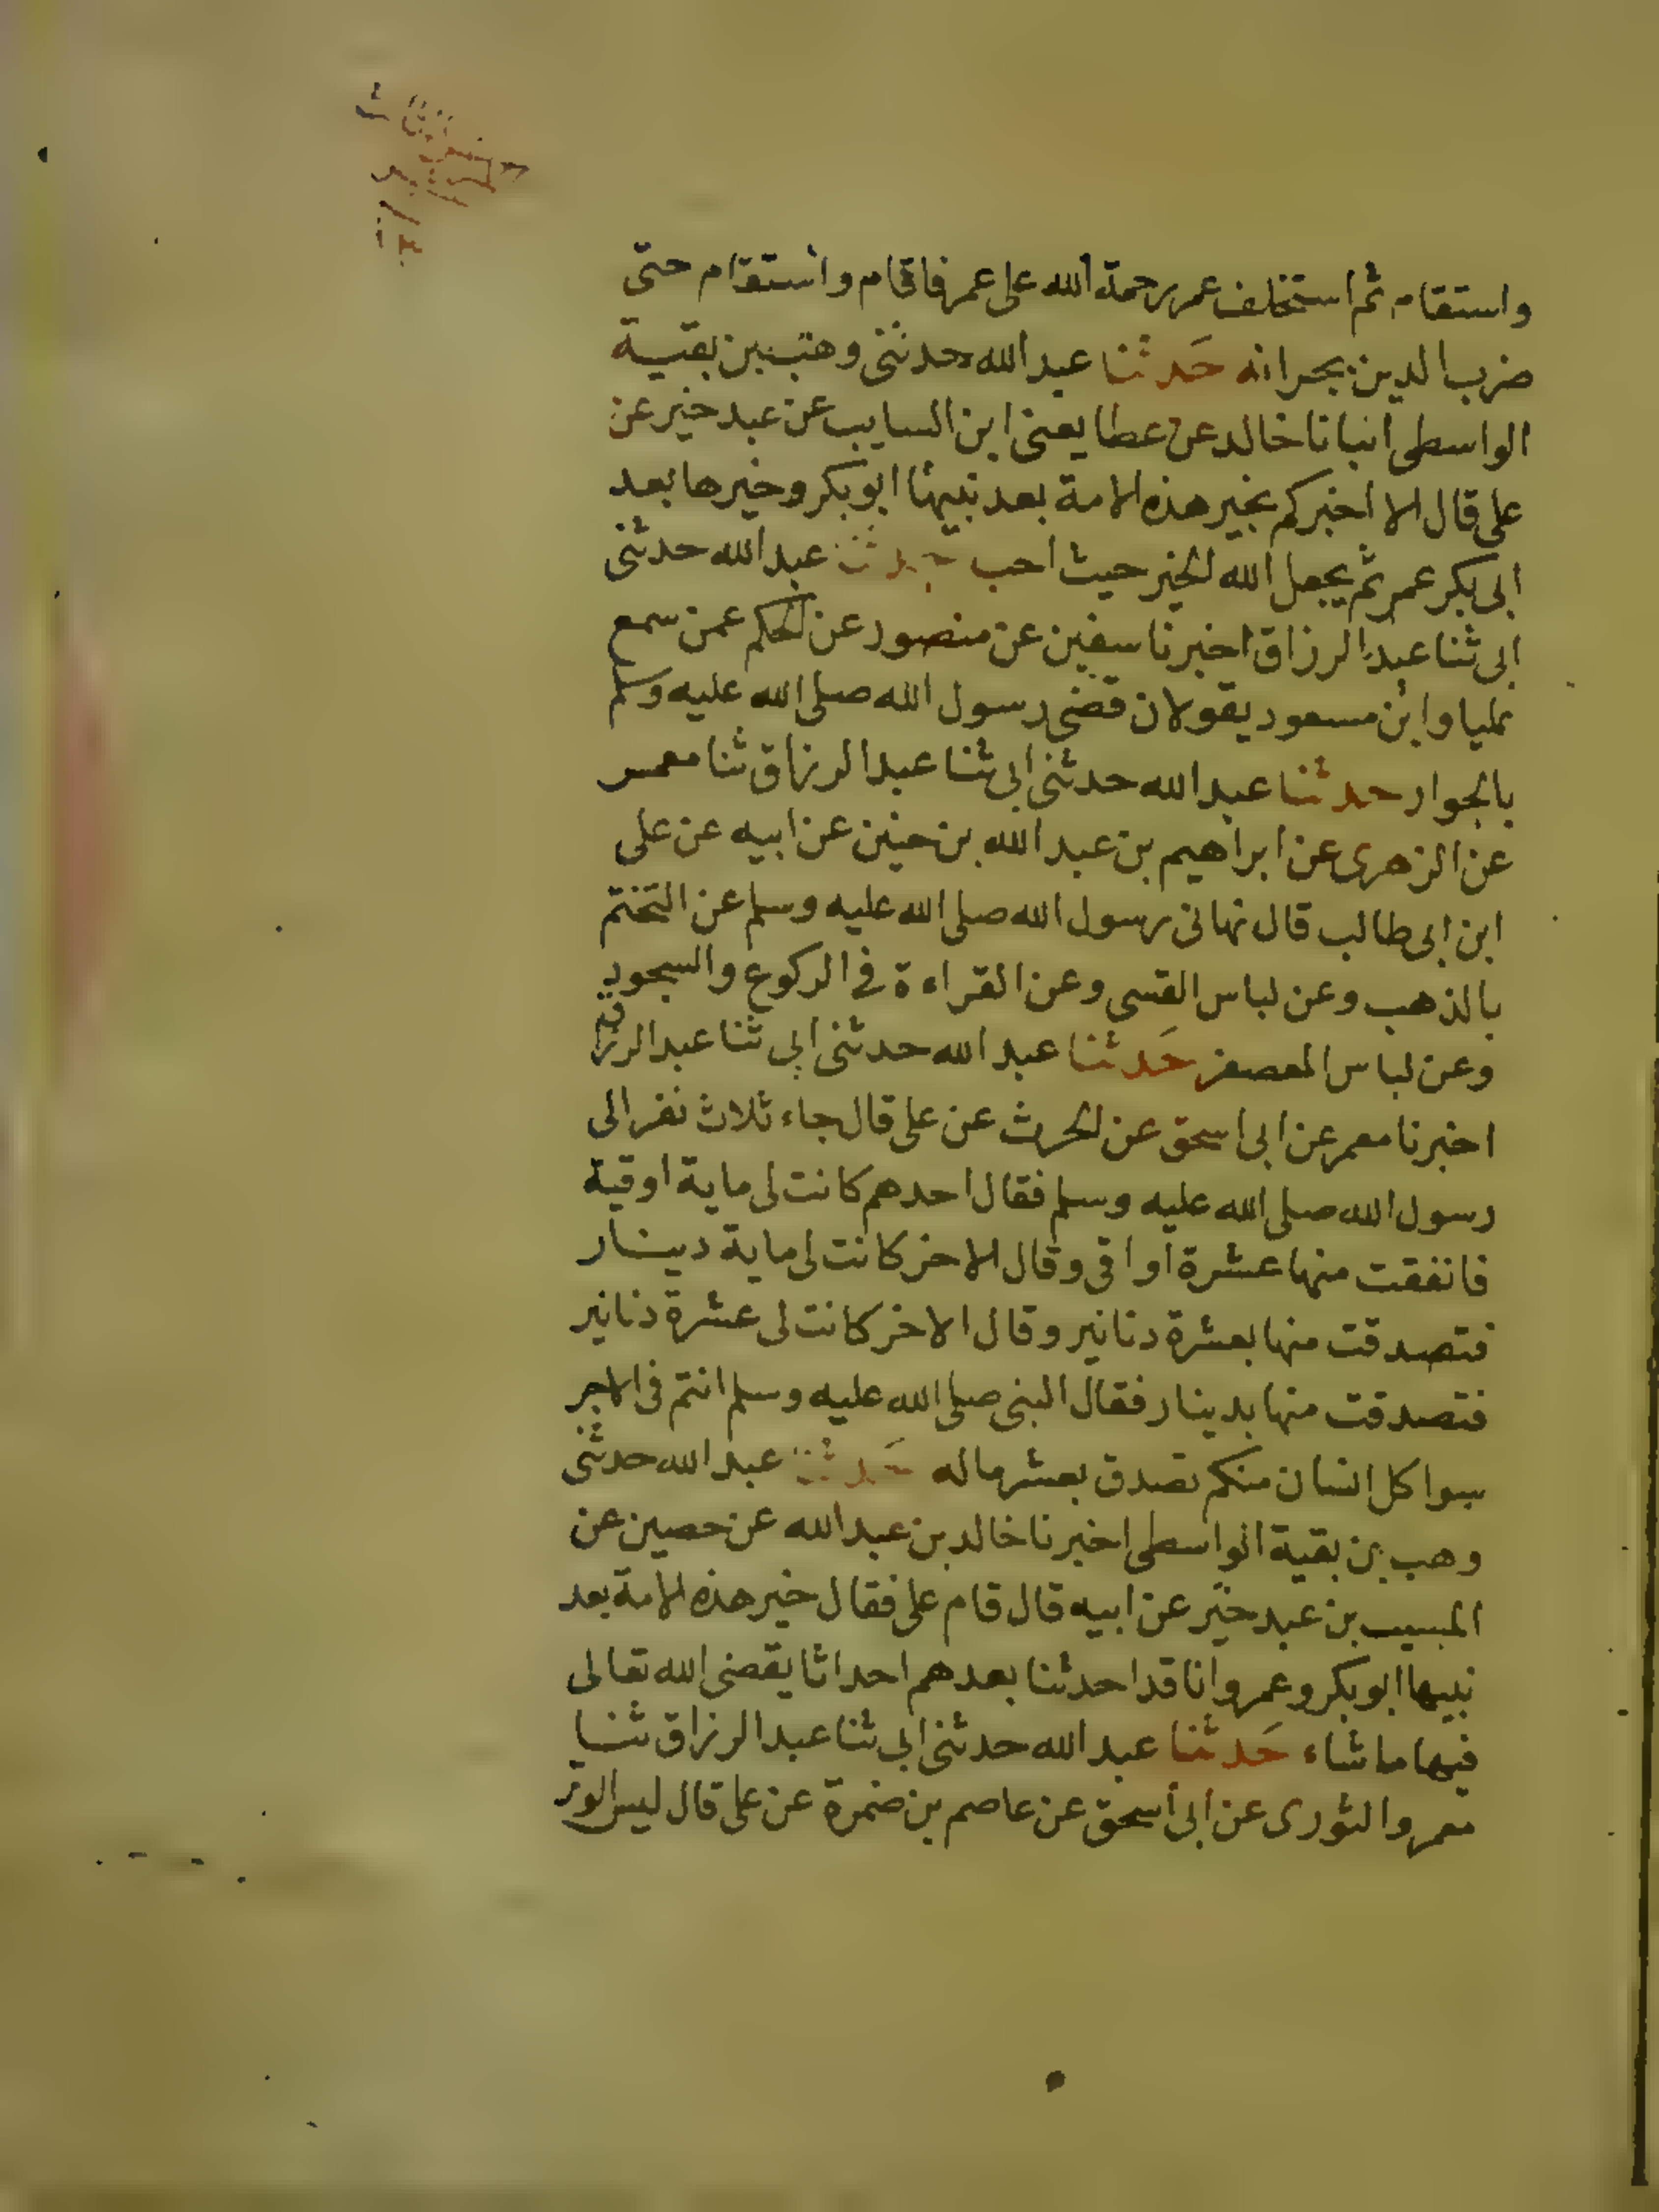 واستقام ثم استخلف عمر رحمة الله على عمر فاقام واستقام حتى
ضرب الدين بجرانه حدثنا عبد الله حدثنى وهب بن بقية
الواسطى انبانا خالد عن عطا يعنى ابن السايب عن عبد خير عن
على قال الا اخبركم بخير هذه الامة بعد نبيها ابو بكر وخيرها بعد
ابى بكر عمر ثم يجعل الله الخير حيث احب حدثنا عبد الله حدثنى
ابى ثنا عبد الرزاق اخبرنا سفين عن منصور عن الحكم عمن سمع
عليا وابن مسعود يقولان قضى رسول الله صلى الله عليه وسلم
بالجوار حدثنا عبد الله حدثنى ابى ثنا عبد الرزاق ثنا معمر
عن الزهرى عن ابراهيم بن عبد الله بن حنين عن ابيه عن على
ابن ابى طالب قال نهانى رسول الله صلى الله عليه وسلم عن التختم
بالذهب وعن لباس القسى وعن القراءة فى الركوع والسجود
وعن لباس المعصفر حدثنا عبد الله حدثنى ابى ثنا عبد الرزاق
اخبرنا معمر عن ابى اسحق عن الحرث عن على قال جاء ثلاث نفر الى
رسول الله صلى الله عليه وسلم فقال احدهم كانت لى ماية اوقية
فانفقت منها عشرة اواقى وقال الاخر كانت لى ماية دينار
فتصدقت منها بعشرة دنانير وقال الاخر كانت لى عشرة دنانير
فتصدقت منها بدينار فقال النبى صلى الله عليه وسلم انتم فى الاجر
سوا كل انسان منكم تصدق بعشر ماله حدثنا عبد الله حدثنى
وهب بن بقية الواسطى اخبرنا خالد بن عبد الله عن حصين عن
المسيب بن عبد خير عن ابيه قال قام على فقال خير هذه الامة بعد
نبيها ابو بكر وعمر وانا قد احدثنا بعدهم احداثا يقضى الله تعالى
فيها ما شاء حدثنا عبد الله حدثنى ابى ثنا عبد الرزاق ثنا
معمر والثورى عن ابى اسحق عن عاصم بن ضمرة عن على قال ليس الوتر